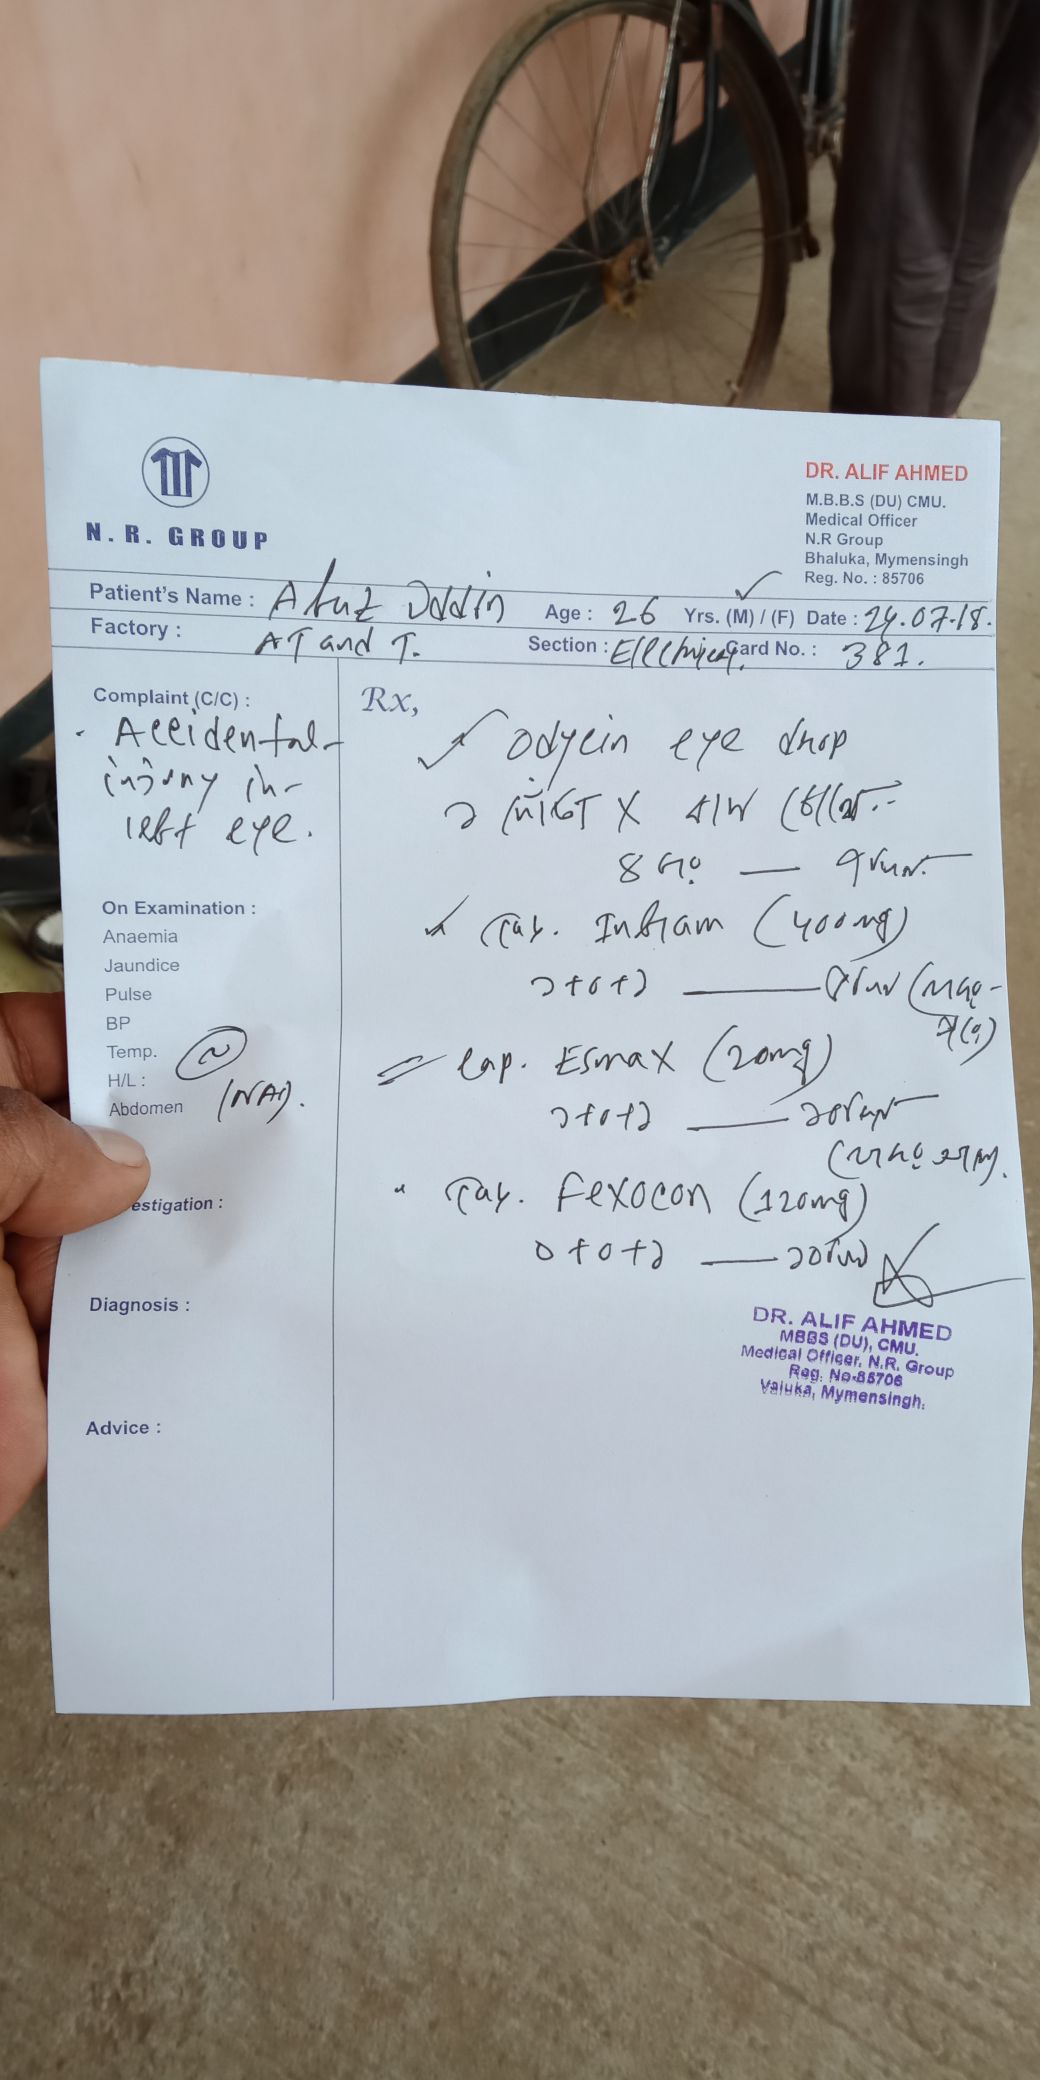 N. R. GROUP
DR. ALIF AHMED
M.B.B.S (DU) CMU.
Medical Officer
N.R Group
Bhaluka, Mymensingh
Reg. No. : 85706
Patient's Name : Uddin Age : 26 Yrs. (M) / (F) Date : 24.07.18.
Factory : AT and T. Section : Electrical. Card No. : 381.
Complaint (C/C) :
Accidental
injury in
left eye.
On Examination :
Anaemia
Jaundice
Pulse
BP
Temp.
H/L :
Abdomen (NAD).
estigation :
Diagnosis :
Advice :
Rx,
Odycin eye drop
১ ফোঁটা X বাম চোখে
৪ বার —
Tab. Inflam (400mg)
১+০+১ —
Cap. Esmax (20mg)
১+০+১ — ১০ দিন
Tab. Fexocon (120mg)
০+০+১ — ১০ দিন
DR. ALIF AHMED
MBBS (DU), CMU.
Medical Officer, N.R. Group
Reg. No-85706
Valuka, Mymensingh.